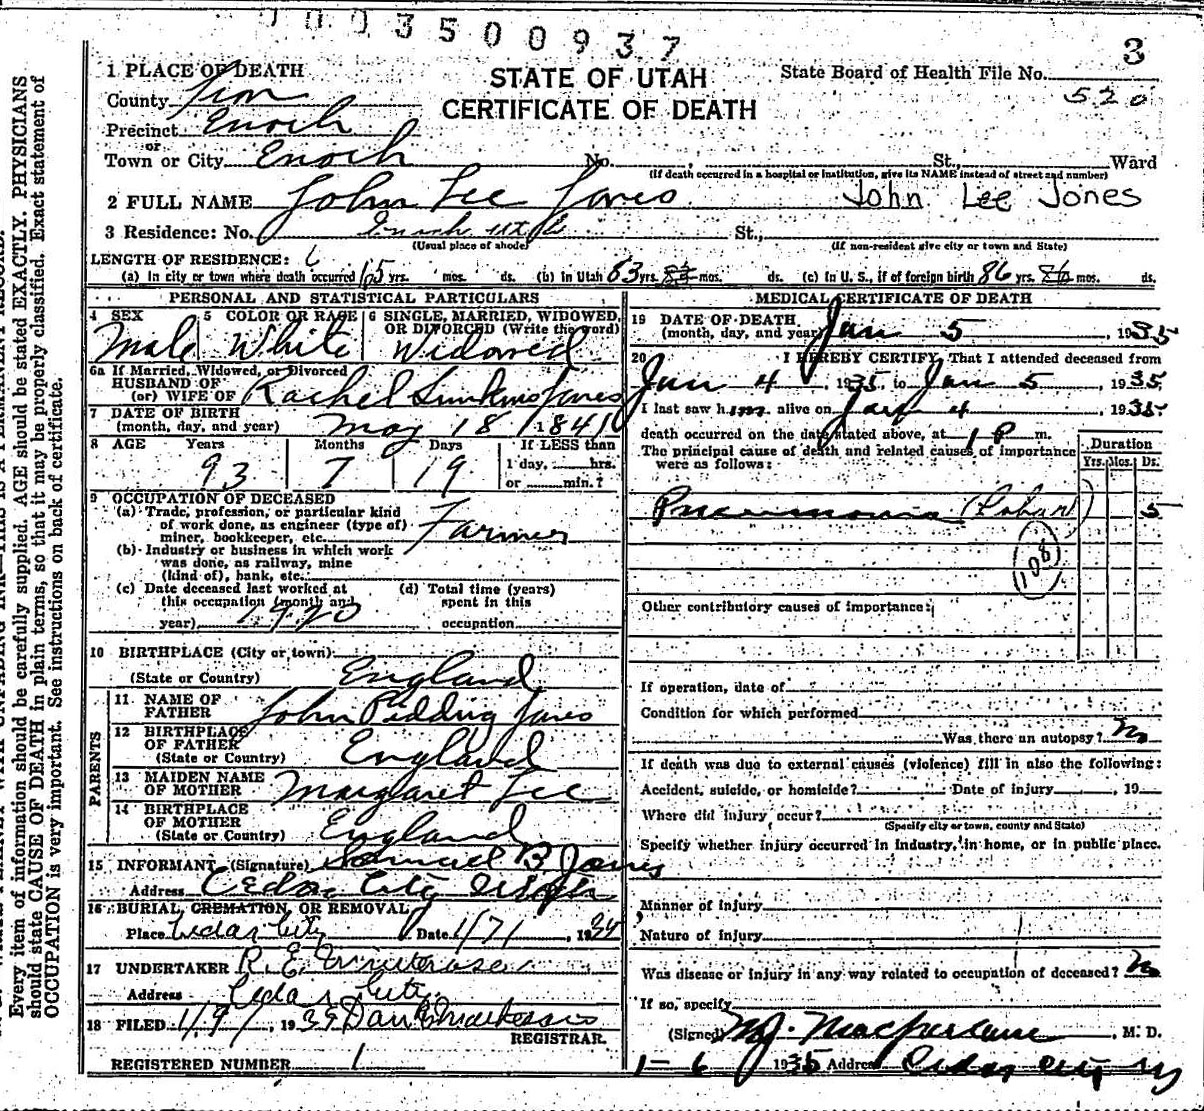 0003500937
3
1 PLACE OF DEATH
STATE OF UTAH
State Board of Health File No.
County Iron
CERTIFICATE OF DEATH
520
Precinct Enoch
or
Town or City Enoch No. , St., Ward
(If death occurred in a hospital or institution, give its NAME instead of street and number)
2 FULL NAME John Lee Jones John Lee Jones
3 Residence: No. Enoch Utah St.,
(Usual place of abode) (If non-resident give city or town and State)
LENGTH OF RESIDENCE:
(a) In city or town where death occurred yrs. mos. ds. (b) in Utah 63 yrs. mos. ds. (c) In U. S., if of foreign birth 86 yrs. mos. ds.
PERSONAL AND STATISTICAL PARTICULARS
4 SEX 5 COLOR OR RACE 6 SINGLE, MARRIED, WIDOWED, OR DIVORCED (Write the word)
Male White Widowed
6a If Married, Widowed, or Divorced
HUSBAND OF
(or) WIFE OF Rachel Jones
7 DATE OF BIRTH
(month, day, and year) May 18 1841
8 AGE Years Months Days If LESS than
93 7 19 1 day, hrs.
or min.?
9 OCCUPATION OF DECEASED
(a) Trade, profession, or particular kind
of work done, as engineer (type of)
miner, bookkeeper, etc. Farmer
(b) Industry or business in which work
was done, as railway, mine
(kind of), bank, etc.
(c) Date deceased last worked at (d) Total time (years)
this occupation (month and spent in this
year) 1920 occupation
10 BIRTHPLACE (City or town)
(State or Country) England
PARENTS
11 NAME OF
FATHER John Pidding Jones
12 BIRTHPLACE
OF FATHER
(State or Country) England
13 MAIDEN NAME
OF MOTHER Margaret Lee
14 BIRTHPLACE
OF MOTHER
(State or Country) England
15 INFORMANT (Signature) Samuel B Jones
Address Cedar City Utah
16 BURIAL, CREMATION, OR REMOVAL
Place Cedar City Date 1/7/ , 19
17 UNDERTAKER R. E.
Address Cedar City
18 FILED 1/9/ , 19
REGISTRAR.
REGISTERED NUMBER 1
MEDICAL CERTIFICATE OF DEATH
19 DATE OF DEATH
(month, day, and year) Jan 5 1935
20 I HEREBY CERTIFY, That I attended deceased from
Jan 4 , 1935 to Jan 5 , 1935
I last saw him alive on Jan 4 , 1935
death occurred on the date stated above, at 1 P m.
The principal cause of death and related causes of importance
were as follows:
Duration
Yrs. Mos. Ds.
Pneumonia (Lobar) 5
108
Other contributory causes of importance:
If operation, date of
Condition for which performed
Was there an autopsy? No
If death was due to external causes (violence) fill in also the following:
Accident, suicide, or homicide? Date of injury , 19
Where did injury occur?
(Specify city or town, county and State)
Specify whether injury occurred in industry, in home, or in public place.
Manner of injury
Nature of injury
Was disease or injury in any way related to occupation of deceased? No
If so, specify
(Signed) M.J. Macfarlane , M. D.
1-6 1935 Address Cedar City
Every item of information should be carefully supplied. AGE should be stated EXACTLY. PHYSICIANS
should state CAUSE OF DEATH in plain terms, so that it may be properly classified. Exact statement of
OCCUPATION is very important. See instructions on back of certificate.